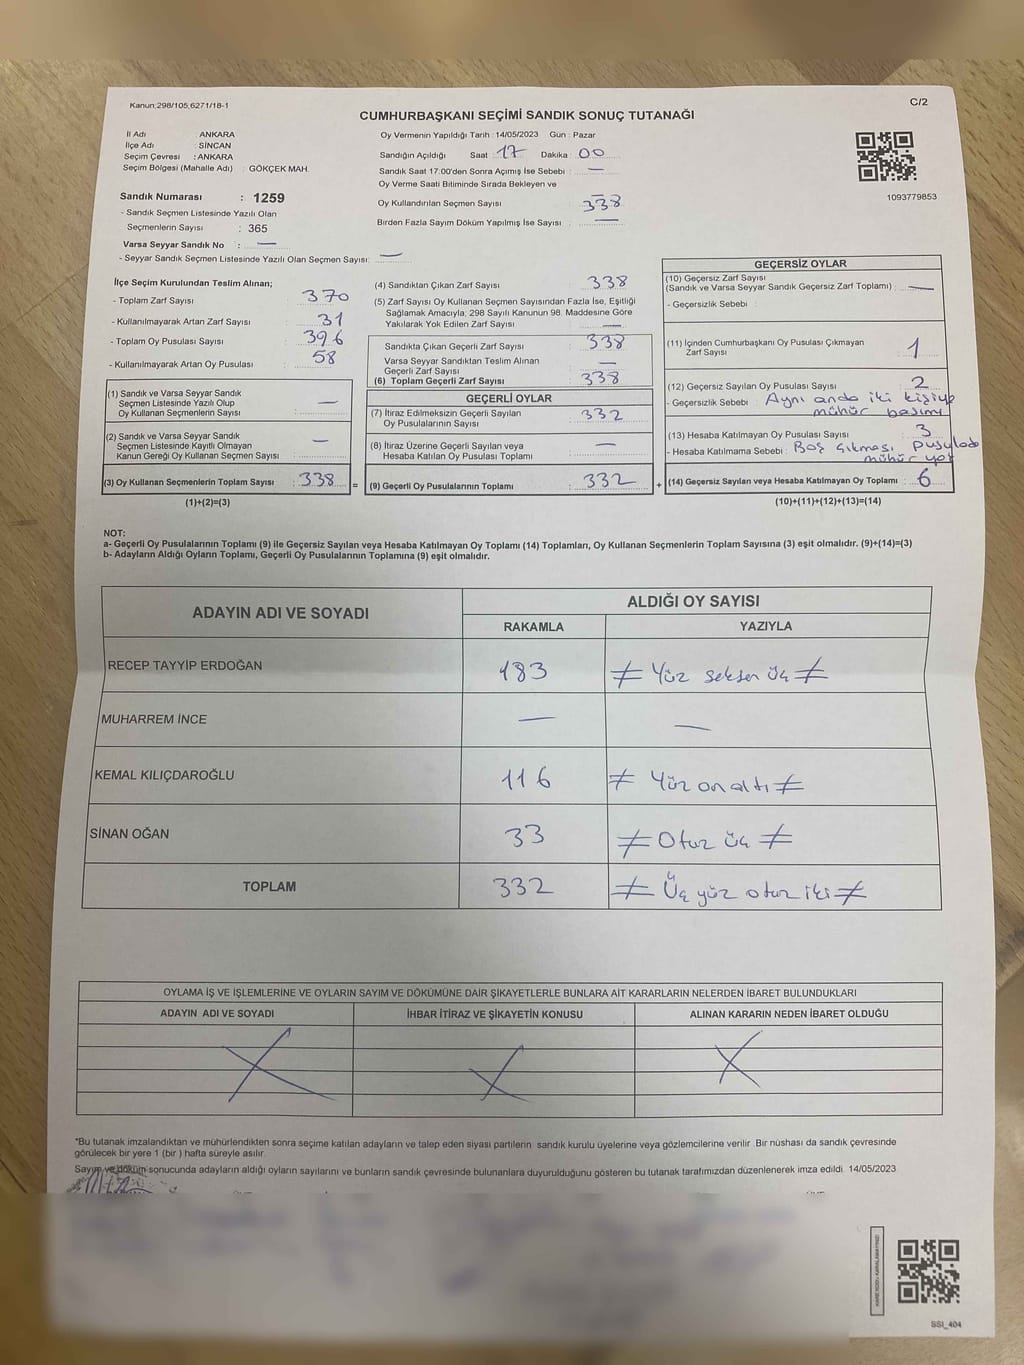 Kanun:298/105,6271/18-1
C/2
CUMHURBAŞKANI SEÇİMİ SANDIK SONUÇ TUTANAĞI
İl Adı ANKARA
İlçe Adı : SİNCAN
Seçim Çevresi : ANKARA
Seçim Bölgesi (Mahalle Adı) : GÖKÇEK MAH.
Oy Vermenin Yapıldığı Tarih : 14/05/2023 Gün : Pazar
Sandığın Açıldığı Saat 17 Dakika 00
Sandık Saat 17:00'den Sonra Açımış İse Sebebi : —
Oy Verme Saati Bitiminde Sırada Bekleyen ve
Oy Kullandırılan Seçmen Sayısı 338
Birden Fazla Sayım Döküm Yapılmış İse Sayısı : —
1093779853
Sandık Numarası : 1259
- Sandık Seçmen Listesinde Yazılı Olan
Seçmenlerin Sayısı : 365
Varsa Seyyar Sandık No : —
- Seyyar Sandık Seçmen Listesinde Yazılı Olan Seçmen Sayısı: —
İlçe Seçim Kurulundan Teslim Alınan;
- Toplam Zarf Sayısı : 370
- Kullanılmayarak Artan Zarf Sayısı : 31
- Toplam Oy Pusulası Sayısı : 396
- Kullanılmayarak Artan Oy Pusulası : 58
(1) Sandık ve Varsa Seyyar Sandık
Seçmen Listesinde Yazılı Olup
Oy Kullanan Seçmenlerin Sayısı : —
(2) Sandık ve Varsa Seyyar Sandık
Seçmen Listesinde Kayıtlı Olmayan
Kanun Gereği Oy Kullanan Seçmen Sayısı : —
(3) Oy Kullanan Seçmenlerin Toplam Sayısı : 338 =
(1)+(2)=(3)
(4) Sandıktan Çıkan Zarf Sayısı : 338
(5) Zarf Sayısı Oy Kullanan Seçmen Sayısından Fazla İse, Eşitliği
Sağlamak Amacıyla, 298 Sayılı Kanunun 98. Maddesine Göre
Yakılarak Yok Edilen Zarf Sayısı : —
Sandıkta Çıkan Geçerli Zarf Sayısı : 338
Varsa Seyyar Sandıktan Teslim Alınan
Geçerli Zarf Sayısı : —
(6) Toplam Geçerli Zarf Sayısı : 338
GEÇERLİ OYLAR
(7) İtiraz Edilmeksizin Geçerli Sayılan
Oy Pusulasının Sayısı : 332
(8) İtiraz Üzerine Geçerli Sayılan veya
Hesaba Katılan Oy Pusulası Toplamı : —
(9) Geçerli Oy Pusulalarının Toplamı : 332 +
GEÇERSİZ OYLAR
(10) Geçersiz Zarf Sayısı
(Sandık ve Varsa Seyyar Sandık Geçersiz Zarf Toplamı) : —
- Geçersizlik Sebebi :
(11) İçinden Cumhurbaşkanı Oy Pusulası Çıkmayan
Zarf Sayısı : 1
(12) Geçersiz Sayılan Oy Pusulası Sayısı : 2
- Geçersizlik Sebebi : Aynı anda iki kişiye
mühür basımı
(13) Hesaba Katılmayan Oy Pusulası Sayısı : 3
- Hesaba Katılmama Sebebi : Boş çıkması pusulada
mühür yok
(14) Geçersiz Sayılan veya Hesaba Katılmayan Oy Toplamı : 6
(10)+(11)+(12)+(13)=(14)
NOT:
a- Geçerli Oy Pusulalarının Toplamı (9) ile Geçersiz Sayılan veya Hesaba Katılmayan Oy Toplamı (14) Toplamları, Oy Kullanan Seçmenlerin Toplam Sayısına (3) eşit olmalıdır. (9)+(14)=(3)
b- Adayların Aldığı Oyların Toplamı, Geçerli Oy Pusulalarının Toplamına (9) eşit olmalıdır.
ADAYIN ADI VE SOYADI ALDIĞI OY SAYISI
RAKAMLA YAZIYLA
RECEP TAYYİP ERDOĞAN 183 ≠ Yüz seksen üç ≠
MUHARREM İNCE — —
KEMAL KILIÇDAROĞLU 116 ≠ Yüz on altı ≠
SİNAN OĞAN 33 ≠ Otuz üç ≠
TOPLAM 332 ≠ Üç yüz otuz iki ≠
OYLAMA İŞ VE İŞLEMLERİNE VE OYLARIN SAYIM VE DÖKÜMÜNE DAİR ŞİKAYETLERLE BUNLARA AİT KARARLARIN NELERDEN İBARET BULUNDUKLARI
ADAYIN ADI VE SOYADI İHBAR İTİRAZ VE ŞİKAYETİN KONUSU ALINAN KARARIN NEDEN İBARET OLDUĞU
*Bu tutanak imzalandıktan ve mühürlendikten sonra seçime katılan adayların ve talep eden siyasi partilerin sandık kurulu üyelerine veya gözlemcilerine verilir. Bir nüshası da sandık çevresinde
görülecek bir yere 1 (bir) hafta süreyle asılır.
Sayım ve döküm sonucunda adayların aldığı oyların sayılarını ve bunların sandık çevresinde bulunanlara duyurulduğunu gösteren bu tutanak tarafımızdan düzenlenerek imza edildi. 14/05/2023
KARE KODU KARALAMAYINIZ!
SSI_404